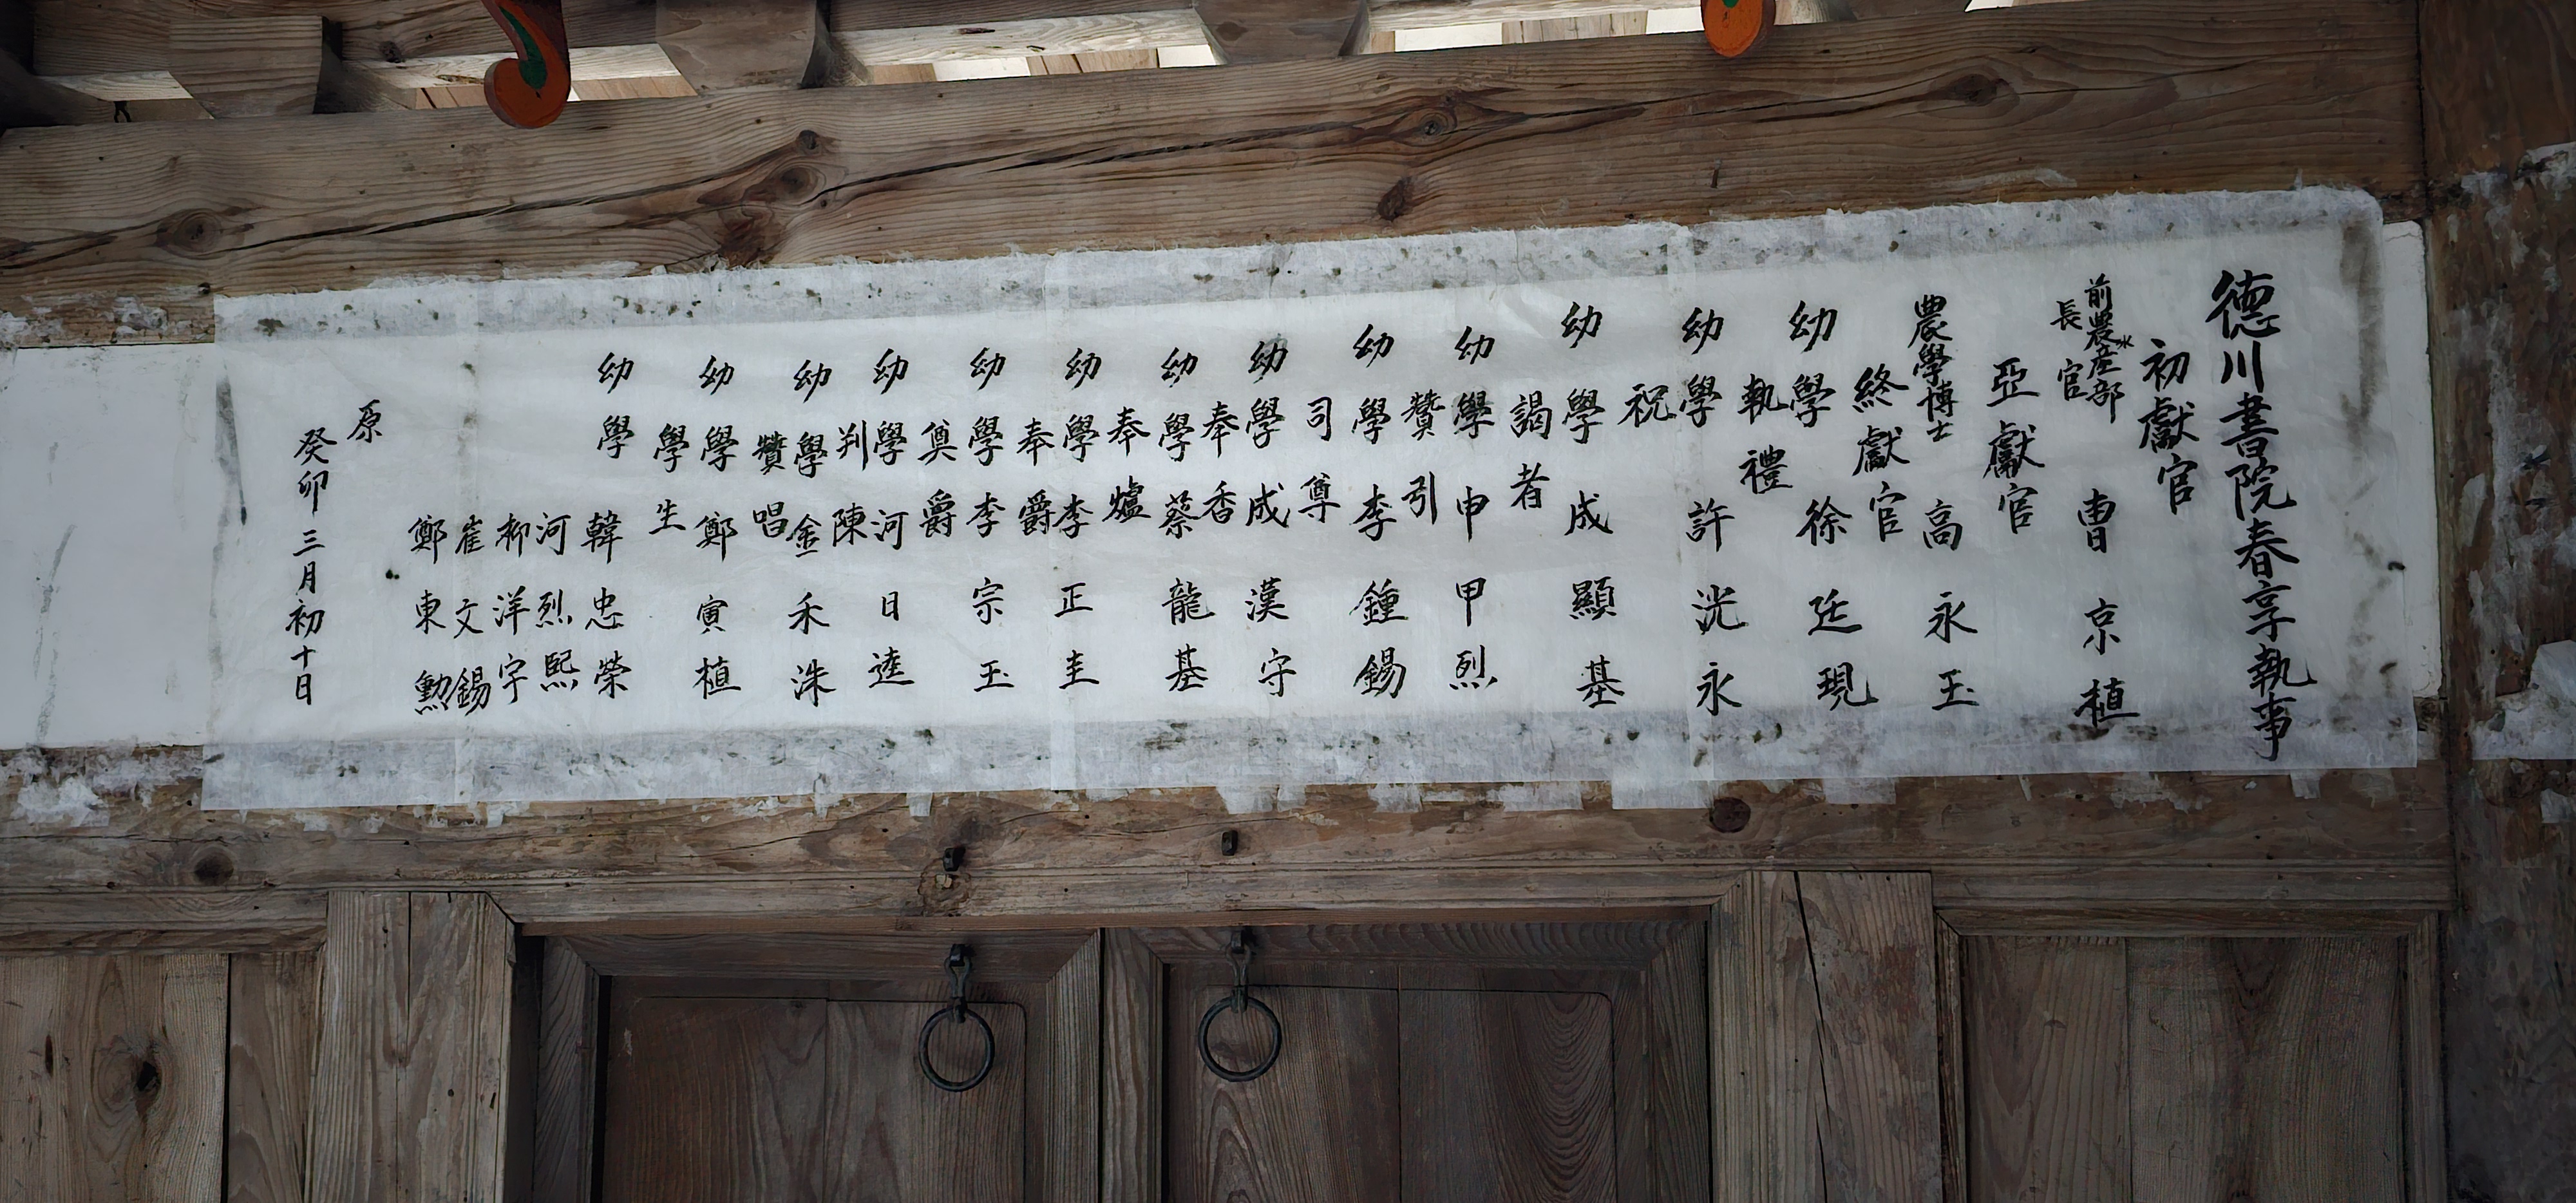 德川書院春享執事
初獻官
前農水産部
長官 曺京植
亞獻官
農學博士 高永玉
終獻官
幼學 徐廷現
執禮
幼學 許洸永
祝
幼學 成顯基
謁者
幼學 申甲烈
贊引
幼學 李鍾錫
司尊
幼學 成漢守
奉香
幼學 蔡龍基
奉爐
幼學 李正圭
奉爵
幼學 李宗玉
奠爵
幼學 河日逵
判陳
幼學 金禾洙
贊唱
幼學 鄭寅植
學生
幼學 韓忠榮
河烈熙
柳洋宇
崔文錫
鄭東勳
原
癸卯三月初十日